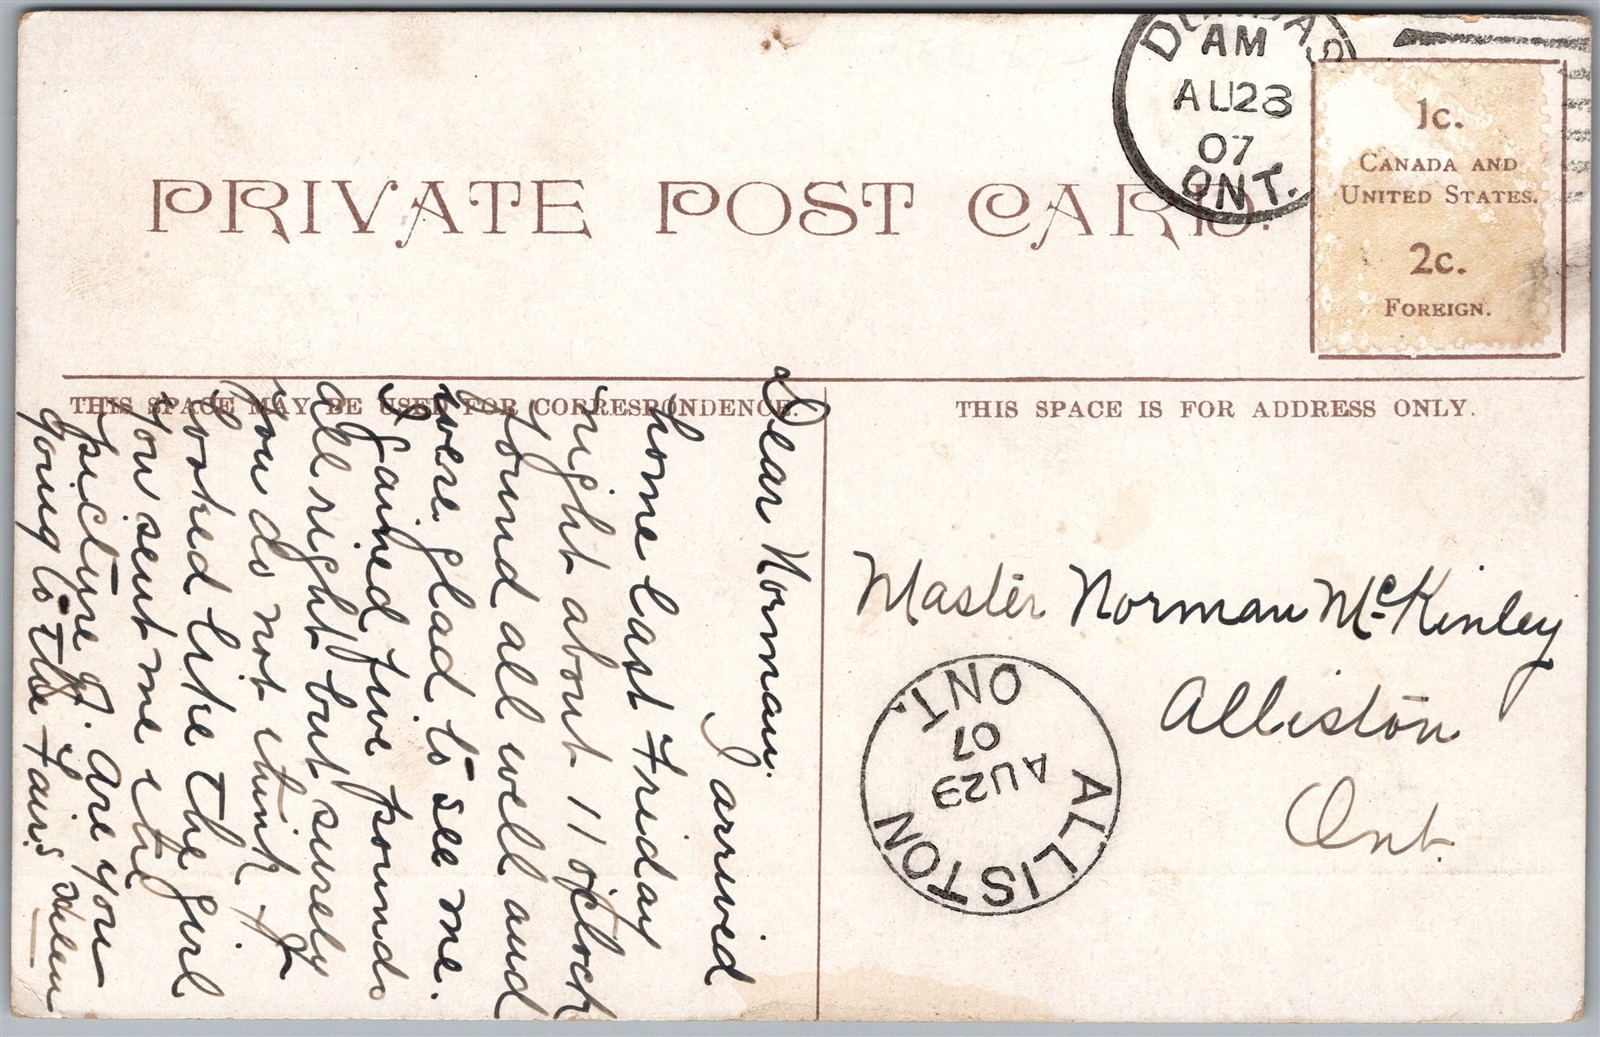 PRIVATE POST CARD.
DUNDAS
AM
AU 28
07
ONT.
1c.
CANADA AND
UNITED STATES.
2c.
FOREIGN.
THIS SPACE MAY BE USED FOR CORRESPONDENCE.
THIS SPACE IS FOR ADDRESS ONLY.
Dear Norman.
I arrived
home last Friday
night about 11 o'clock
found all well and
were glad to see me.
I gained five pounds
all right but surely
you do not think I
looked like the girl
you sent me the
picture of. Are you
going to the Fair.
Helen
Master Norman McKinley
Alliston
Ont.
ALLISTON
AU 29
07
ONT.